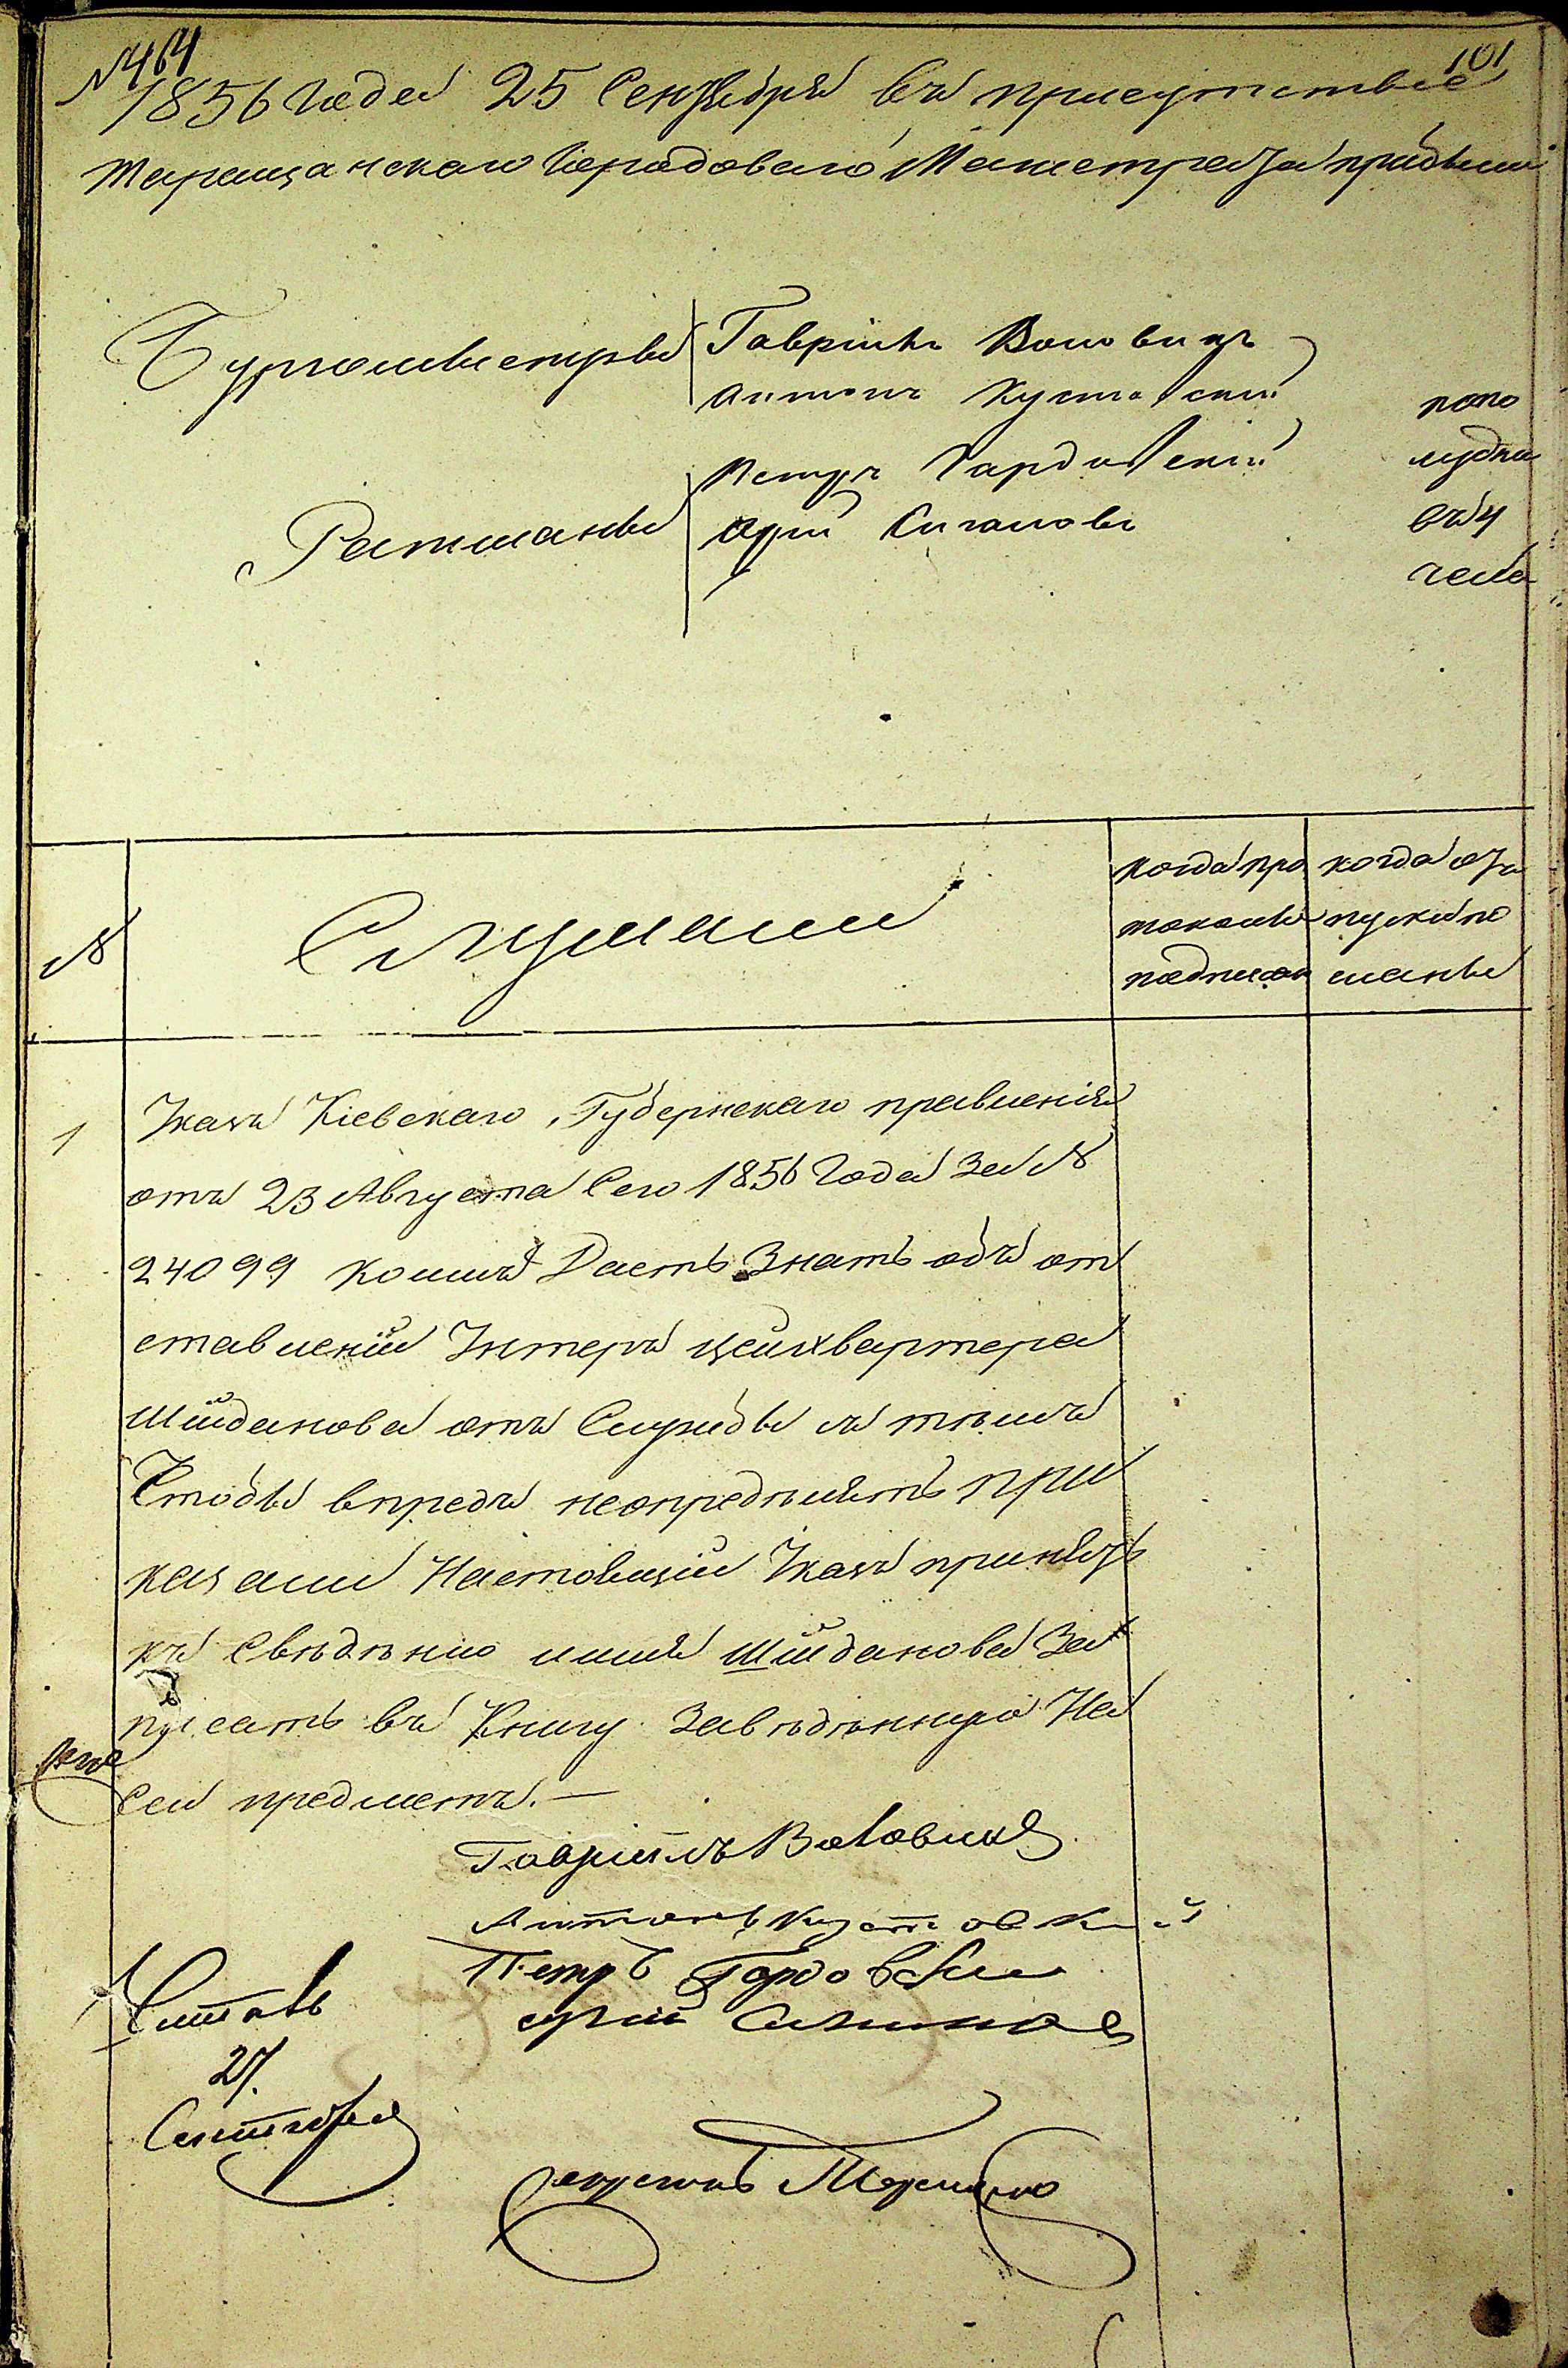 № 464
101
1856 Года 25 Сентября въ присутствіе
Таращанскаго Городоваго Магистрата прибыли
Бургомистры
Гавріилъ Воловикъ
Антонъ Кустовскій
Петръ Гардовскій
Ратманы
попо
лудни
въ 4
часа
№
Слушали
когда про
токолъ
подписан
когда от
пуски по
сланы
1
Указъ Кіевскаго Губернскаго правленія
отъ 23 Августа Сего 1856 Года За №
24099 Коимъ Даетъ Знать объ от
ставленіи Унтеръ цейхвартера
Шйданова отъ Службы съ тѣмъ
Чтобы впредъ неопредѣлять при
казали Настоящій Указъ принять
къ Свѣдѣнію имя Шйданова За
писать въ Книгу Заведѣнную На
Сей предметъ.—
Гавріилъ Воловикъ
Антонъ Кустовскій
Петръ Гордовскій
Читалъ
27.
Сентября
Секретарь